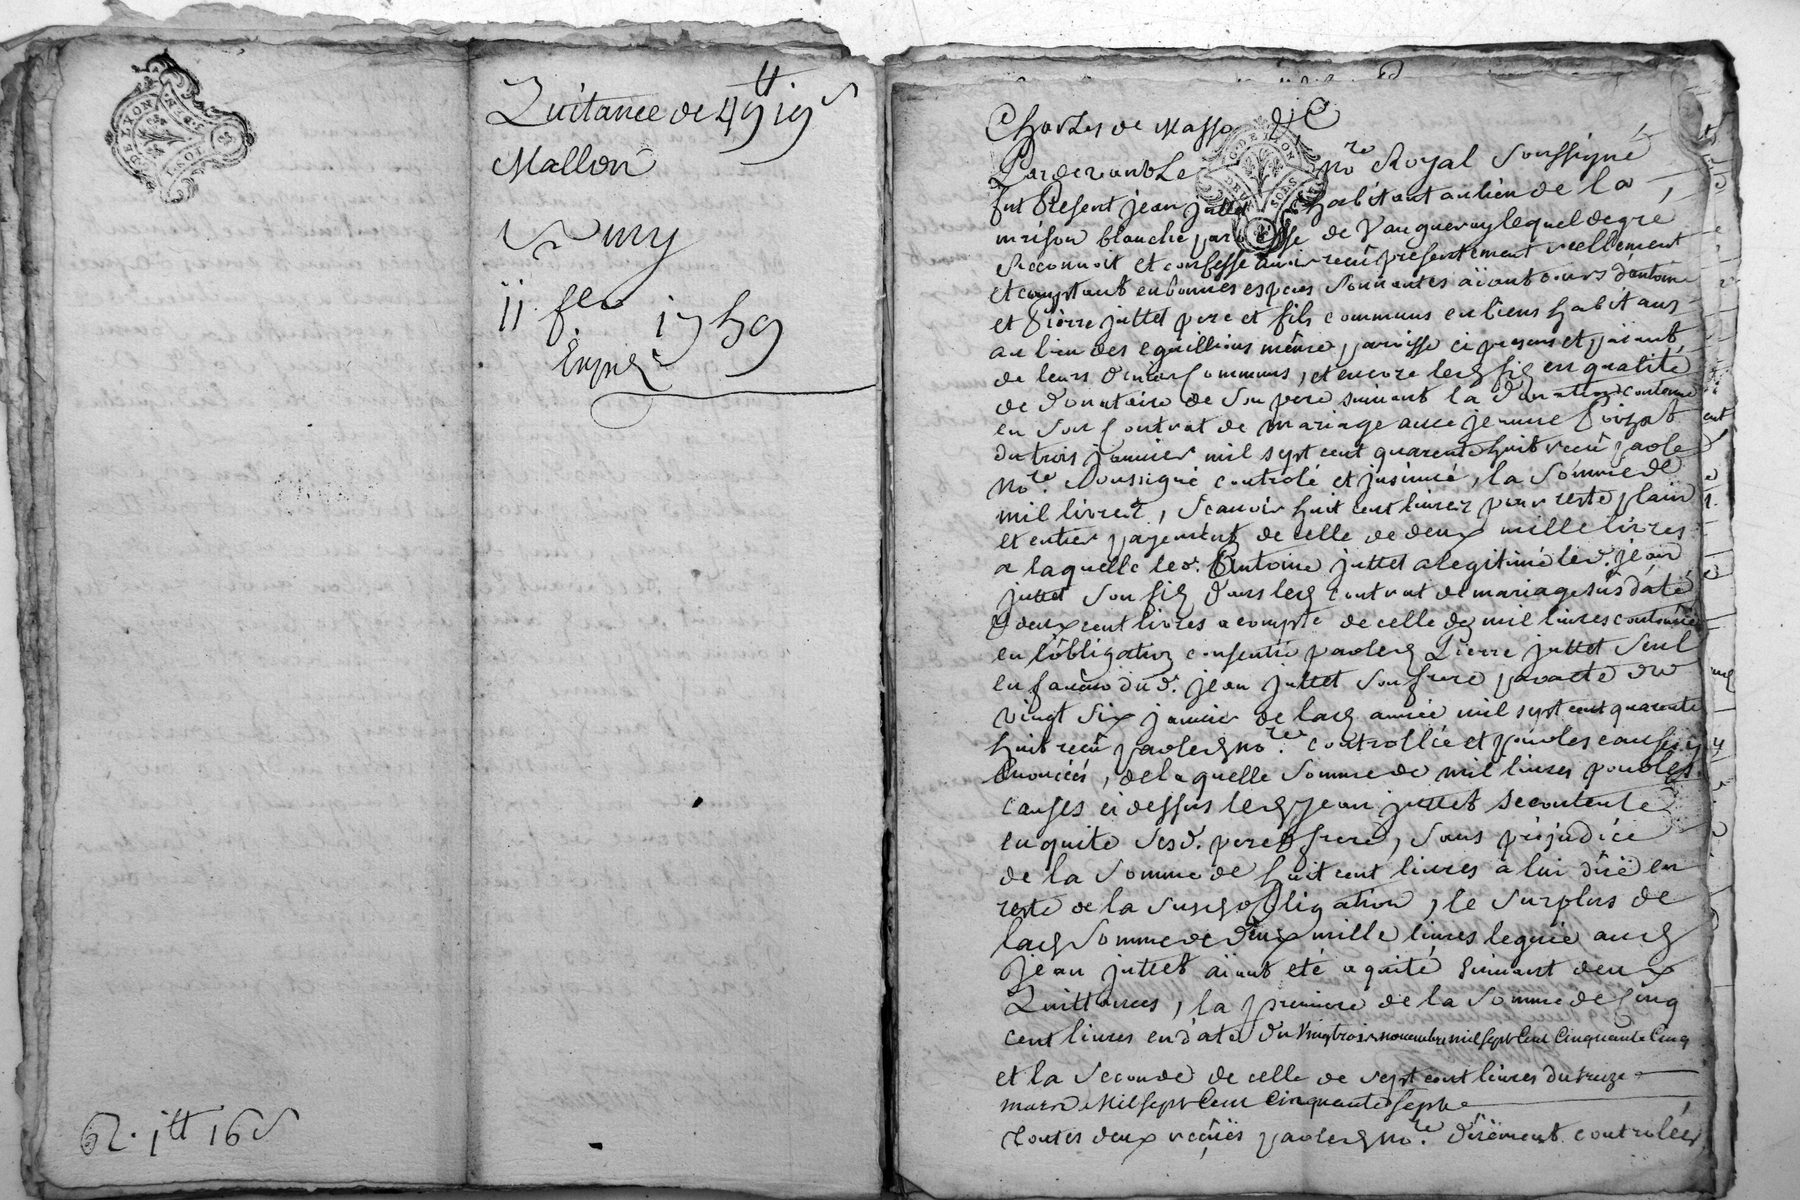 G. DE LYON
DEUX SOLS
Quitance de 49tt 19s
Mallon
ii fer 1759
62. 1tt 16s
Charles de Masso &c
Par devant Le no.re Royal soussigné
fut Présent jean juttet habitant au lieu de la
maison blanche, paroisse de Vaugneray lequel de gré
Reconnoit et confesse avoir reçû présentement reellement
et comptant en bonnes espèces sonnantes aïant cours d'antoine
et Pierre juttet pere et fils communs en biens habitans
au lieu des eguillions même paroisse ci présens et païant
de leurs deniers communs, et encore led fis en qualité
de donataire de son pere suivant la donation contenue
en son Contrat de mariage avec jeanne Poizat
du trois janvier mil sept cent quarente huit reçû par le
no.re soussigné controlé et insinué, la somme de
mil livres, scavoir huit cent livres pour reste plain
et entier payement de celle de deux mille livres
a laquelle le d. Antoine juttet a legitimé le d. jean
juttet son fis dans led contrat de mariage sus daté
& deux cent livres a compte de celle de mil livres contenue
en l'obligation consentie par led Pierre juttet seul
en faveur du d. jean juttet son frere par acte du
vingt six janvier de lad année mil sept cent quarente
huit reçû par led no.re controllée et pour les causes y
énoncées, de laquelle somme de mil livres pour les
causes ci dessus led jean juttet se contente
en quite sesd. pere & frere, sans préjudice
de la somme de huit cent livres a lui düe en
reste de la susd obligation, le surplus de
lad somme de deux mille livres leguée aud
jean juttet aïant eté aquité suivant deux
Quittances, la premiere de la somme de Cinq
cent livres en date du vingt trois novembre mil sept Cent Cinquante Cinq
et la seconde de celle de sept cent livres du treize
mars Mil sept Cent Cinquante sept
toutes deux reçües par led no.re düement controlées